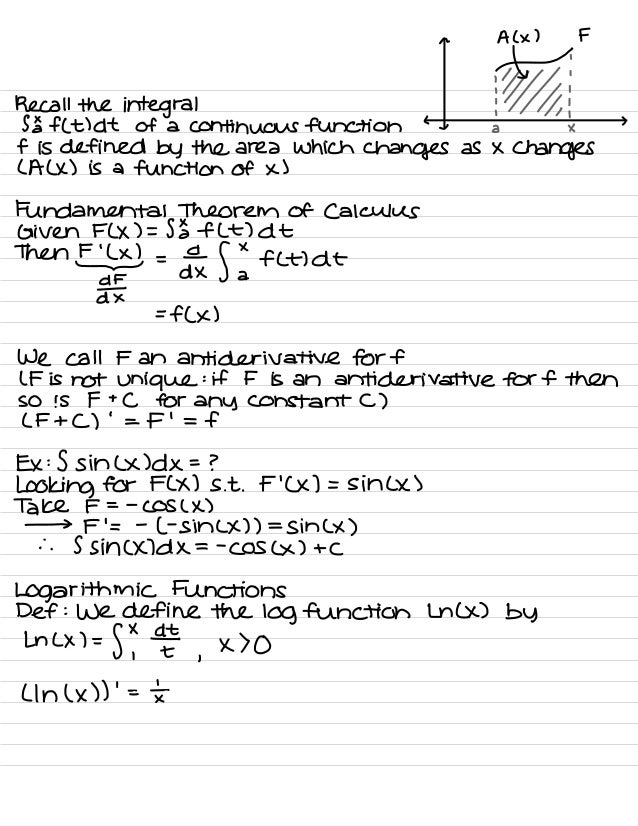 A(x) F
a x
Recall the integral
∫ₐˣ f(t)dt of a continuous function
f is defined by the area which changes as x changes
(A(x) is a function of x)
Fundamental Theorem of Calculus
Given F(x) = ∫ₐˣ f(t)dt
Then F'(x) = d/dx ∫ₐˣ f(t)dt
dF/dx
= f(x)
We call F an antiderivative for f
(F is not unique: if F is an antiderivative for f then
so is F + C for any constant C)
(F+C)' = F' = f
Ex: ∫ sin(x)dx = ?
Looking for F(x) s.t. F'(x) = sin(x)
Take F = -cos(x)
→ F' = -(-sin(x)) = sin(x)
∴ ∫ sin(x)dx = -cos(x) + C
Logarithmic Functions
Def: We define the log function ln(x) by
ln(x) = ∫₁ˣ dt/t , x > 0
(ln(x))' = 1/x